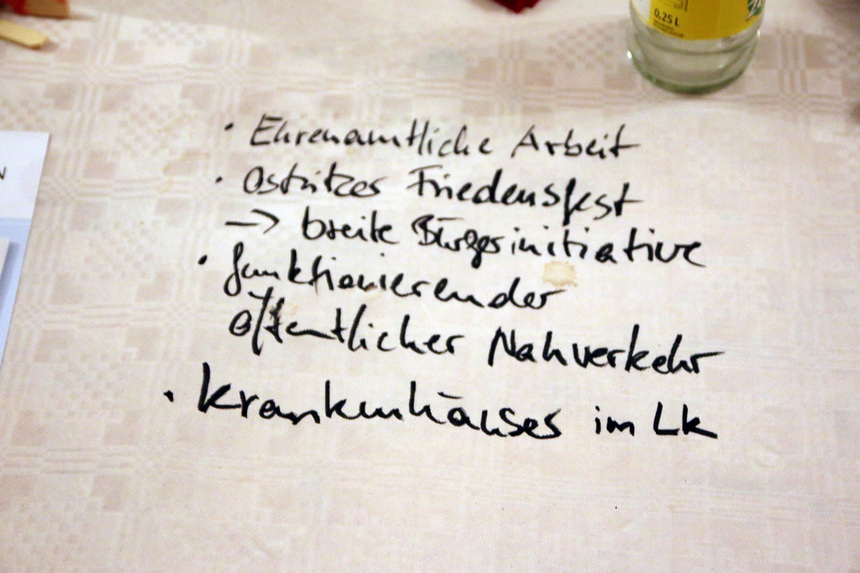 • Ehrenamtliche Arbeit
• Ostritzer Friedensfest
-> breite Bürgerinitiative
• funktionierender
öffentlicher Nahverkehr
• Krankenhäuser im LK
0,25 L
N